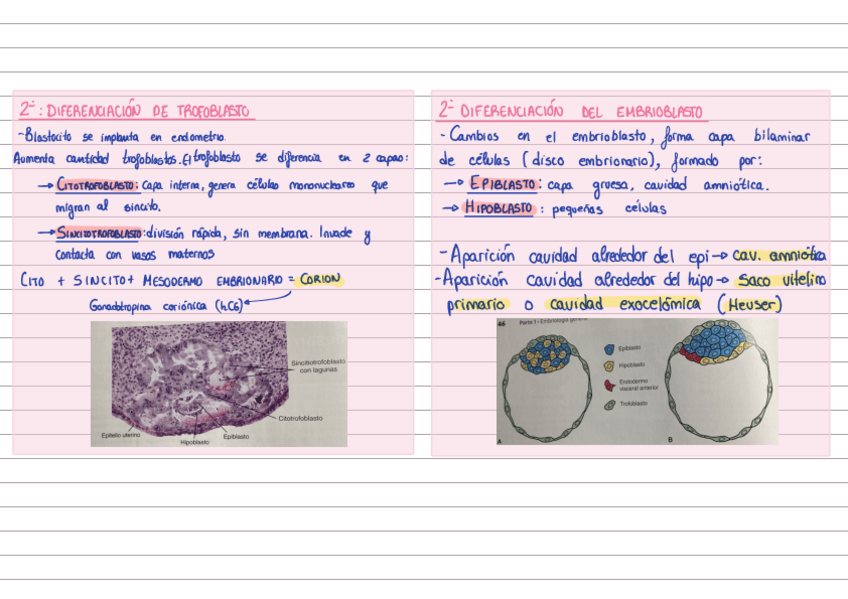 2ª: DIFERENCIACIÓN DE TROFOBLASTO
- Blastocito se implanta en endometrio.
Aumenta cantidad trofoblastos. El trofoblasto se diferencia en 2 capas:
→ CITOTROFOBLASTO: capa interna, genera células mononucleares que
migran al sincito.
→ SINCITOTROFOBLASTO: división rápida, sin membrana. Invade y
contacta con vasos maternos
CITO + SINCITO + MESODERMO EMBRIONARIO = CORION
Gonadotropina coriónica (hCG)
Sincitiotrofoblasto
con lagunas
Citotrofoblasto
Epitelio uterino
Hipoblasto
Epiblasto
2ª DIFERENCIACIÓN DEL EMBRIOBLASTO
- Cambios en el embrioblasto, forma capa bilaminar
de células (disco embrionario), formado por:
→ EPIBLASTO: capa gruesa, cavidad amniótica.
→ HIPOBLASTO: pequeñas células
- Aparición cavidad alrededor del epi → cav. amniótica
- Aparición cavidad alrededor del hipo → Saco vitelino
primario o cavidad exocelómica (Heuser)
46 Parte I • Embriología general
Epiblasto
Hipoblasto
Endodermo
visceral anterior
Trofoblasto
A
B